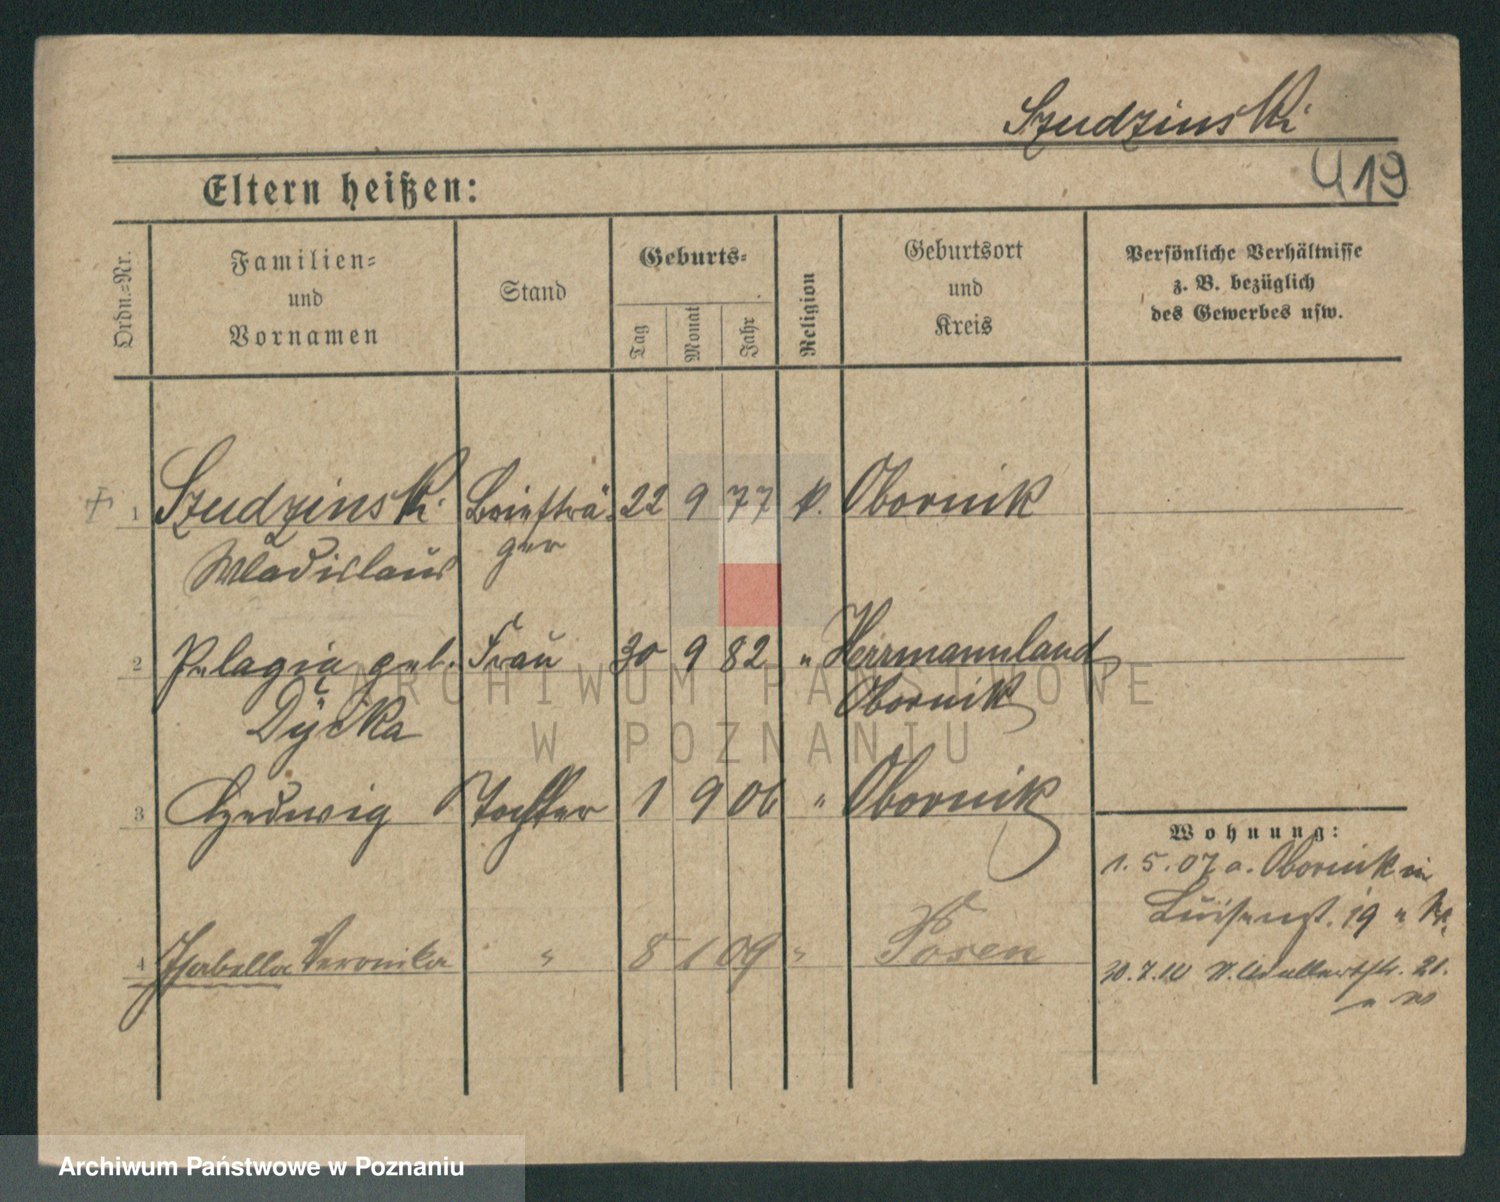 Szudzinski
419
Eltern heißen:
Ordn.-Nr.
Familien-
und
Vornamen
Stand
Geburts-
Tag
Monat
Jahr
Religion
Geburtsort
und
Kreis
Persönliche Verhältnisse
z. B. bezüglich
des Gewerbes usw.
1 Szudzinski Briefträ- 22 9 77 k. Obornik
Wladislaus ger
2 Pelagia geb. Frau 30 9 82 " Herrmannland
Dycka Obornik
3 Hedwig Tochter 1 9 06 " Obornik
Wohnung:
1.5.07 a. Obornik in
Luisenst. 19
4 Isabella Veronika " 8 1 09 " Posen
ARCHIWUM PAŃSTWOWE
W POZNANIU
Archiwum Państwowe w Poznaniu